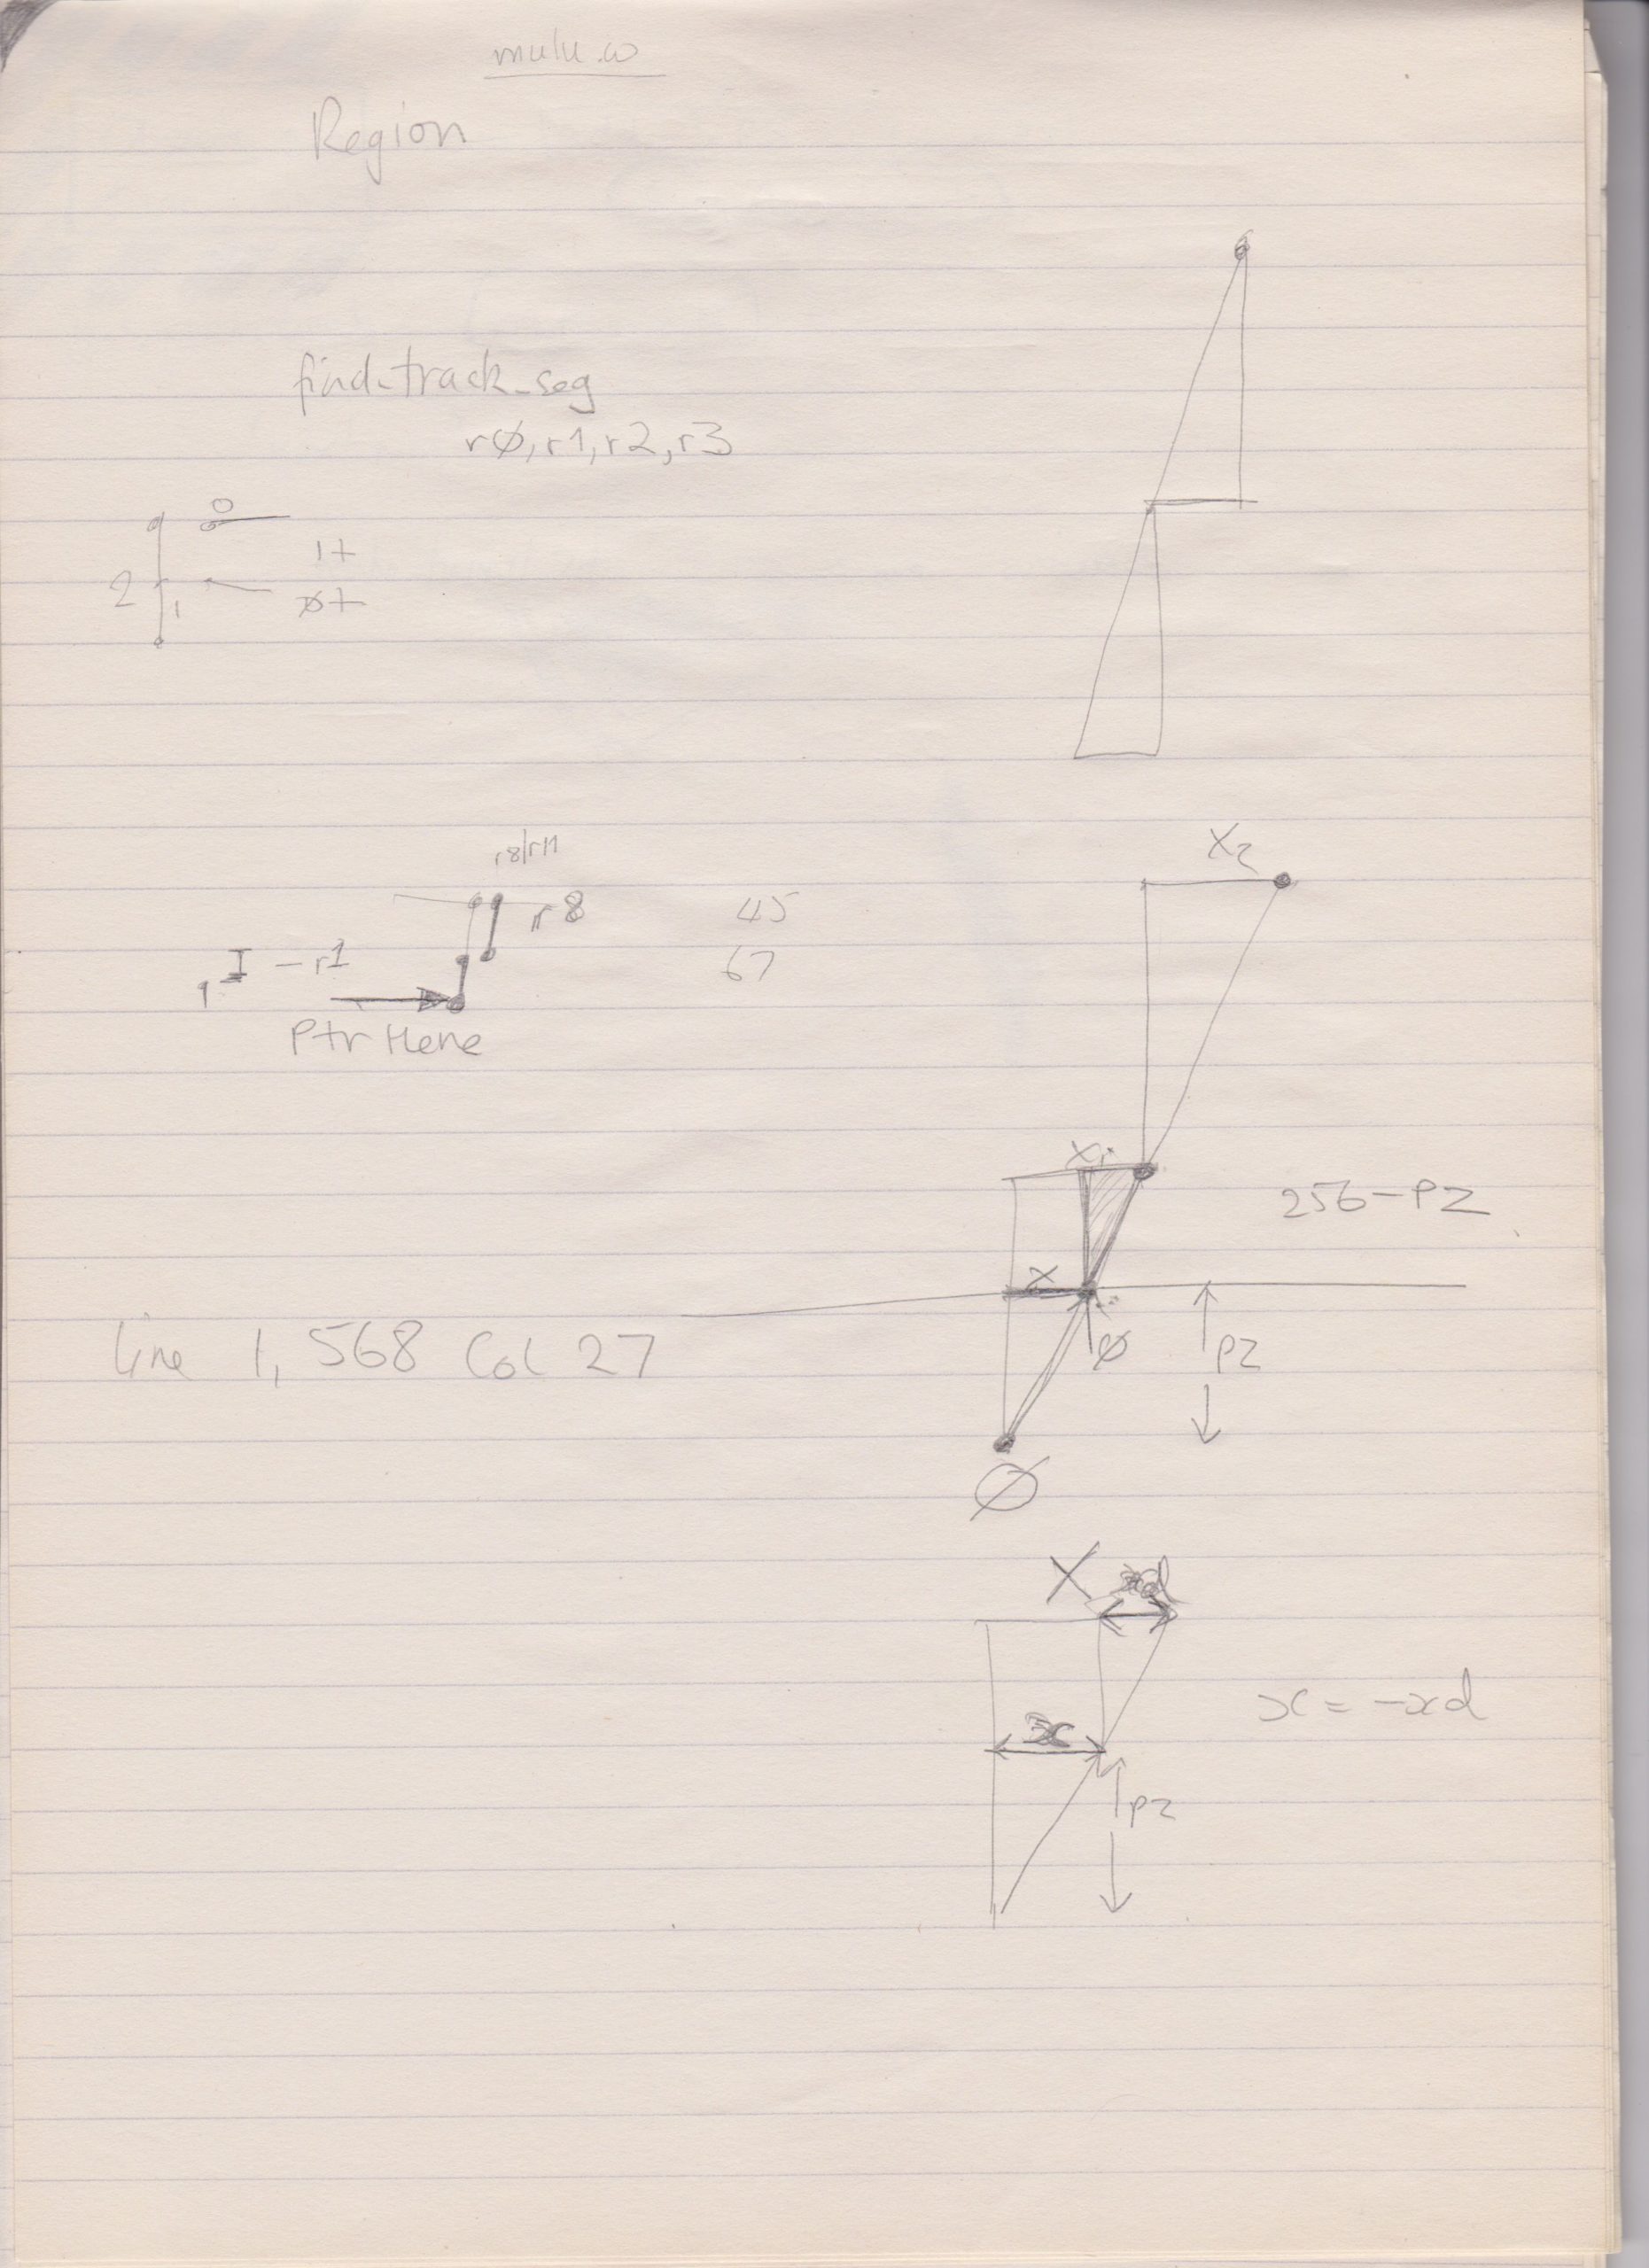 mulu.w
Region
find_track_seg
rØ, r1, r2, r3
0
1+
2 1 Ø+
r8/r11
r8 45
I - r1 67
1
Ptr Here
X2
X1
256-PZ
x
Ø PZ
Line 1, 568 Col 27
Ø
X xd
x = -xd
x
PZ